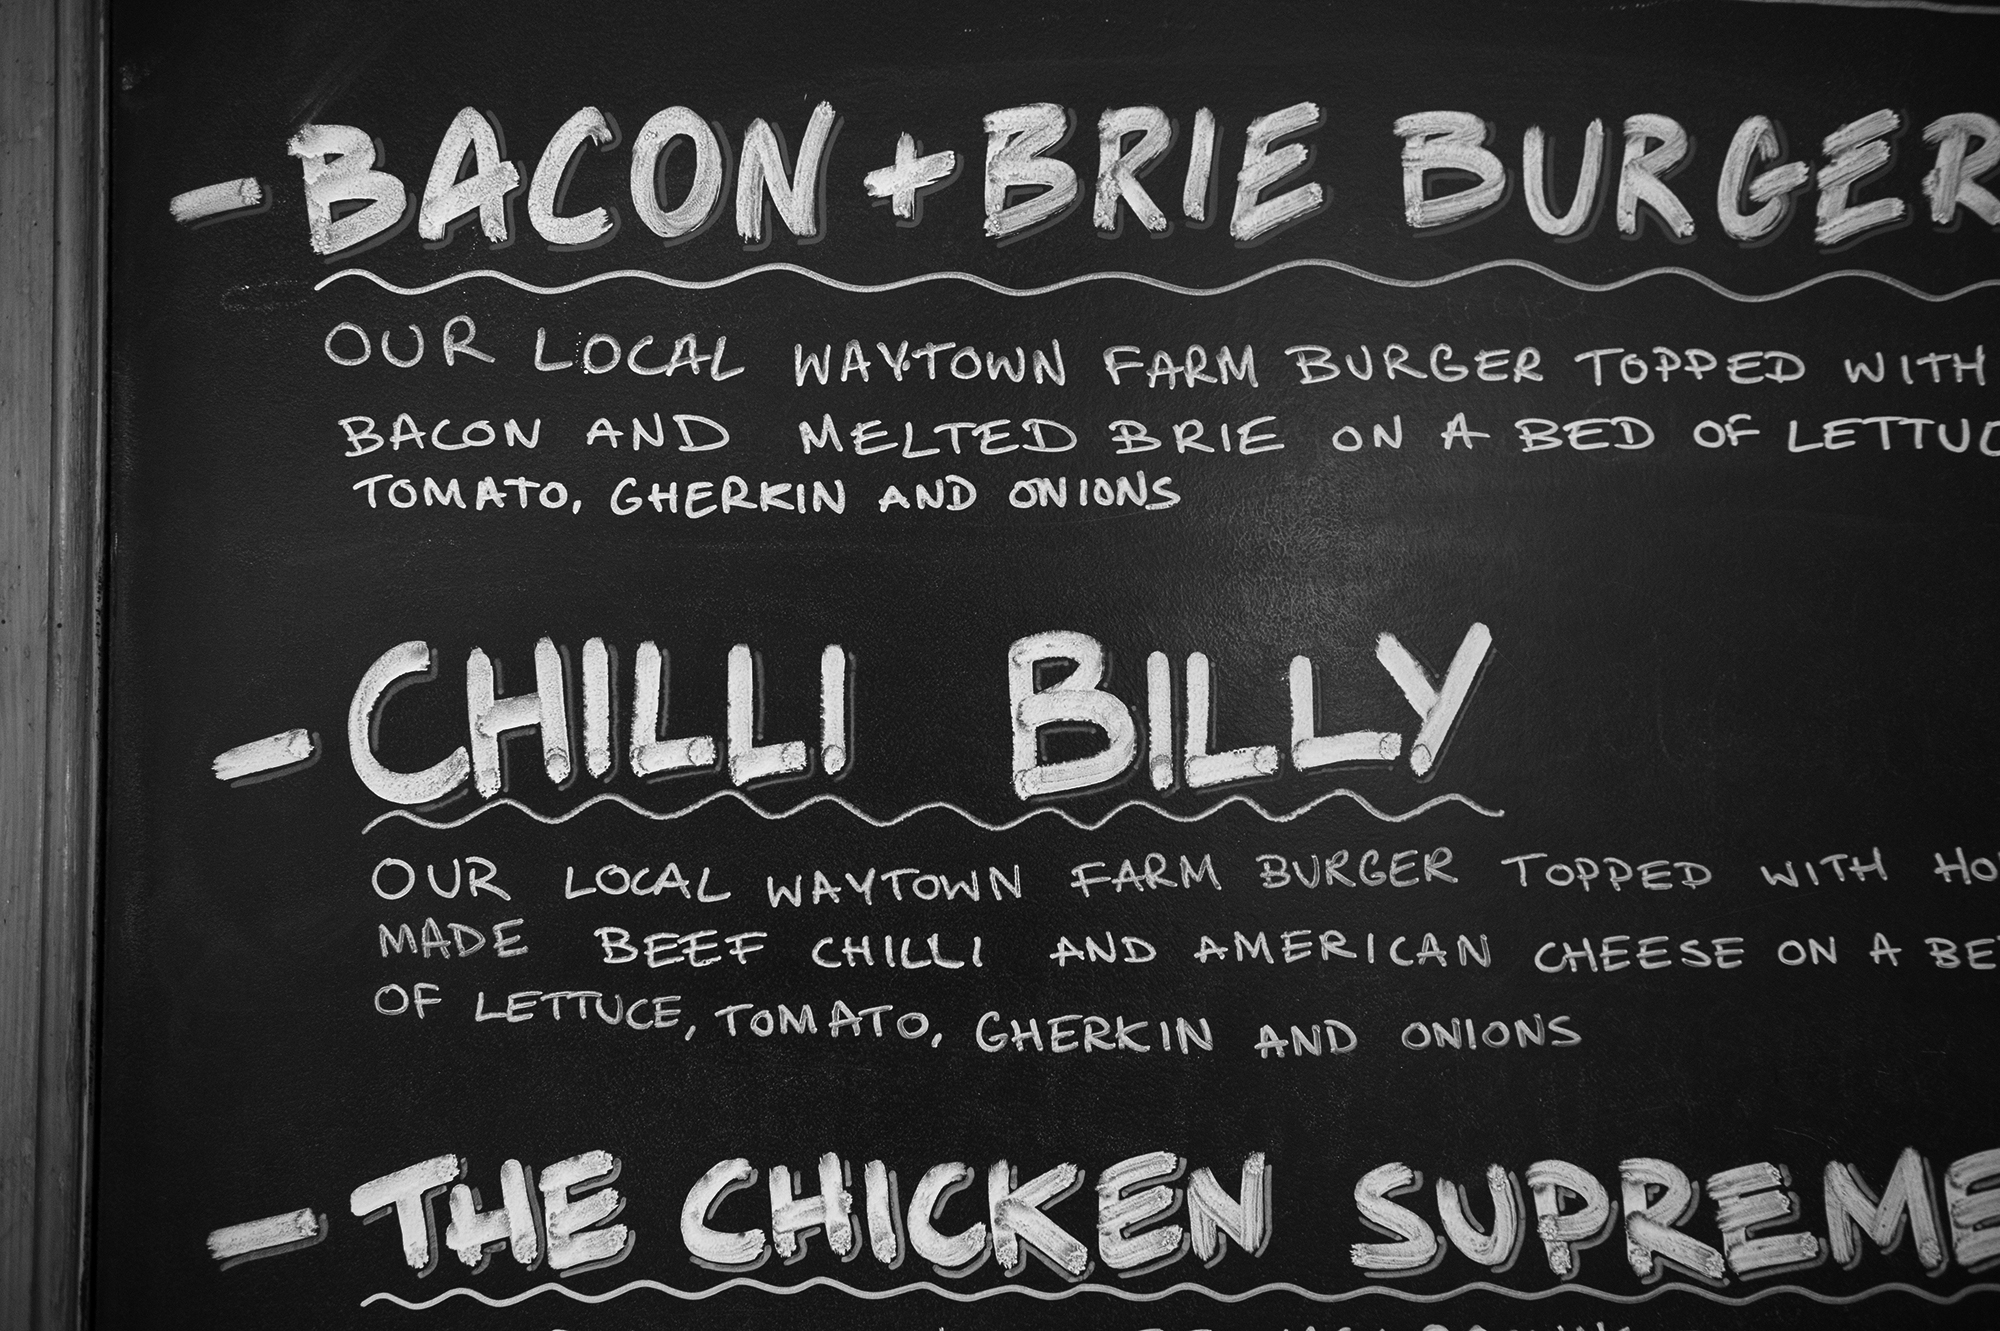 - BACON + BRIE BURGER
OUR LOCAL WAYTOWN FARM BURGER TOPPED WITH
BACON AND MELTED BRIE ON A BED OF LETTUC
TOMATO, GHERKIN AND ONIONS
- CHILLI BILLY
OUR LOCAL WAYTOWN FARM BURGER TOPPED WITH HO
MADE BEEF CHILLI AND AMERICAN CHEESE ON A BE
OF LETTUCE, TOMATO, GHERKIN AND ONIONS
- THE CHICKEN SUPREME